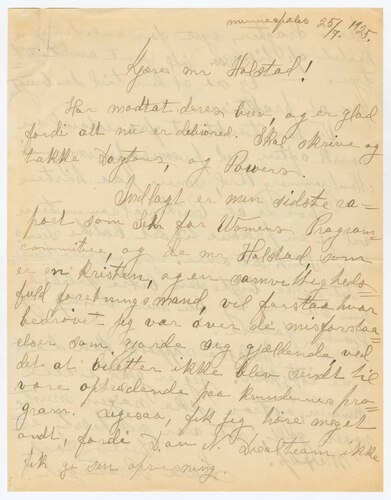 minneapolis 25/9. 1925.
Kjære mr Halstad!
Har modtat deres brev, og er glad
fordi alt nu er Skal skrive og
takke Daytons, og Powers.
Indlagt er min sidste ra-
port som Sek for Womens Program
committee, og de mr. Halstad som
er en kristen, og en samvittigheds-
fuld forretningsmand, vil forstaa hvor
bedrøvet jeg var over de misforstaa-
elser som gjorde sig gjældende, ved
det at biletter ikke blev sendt til
vore optrædende paa kvindernes pro-
gram. ogsaa, fik jeg høre meget
ondt, fordi ikke
fik